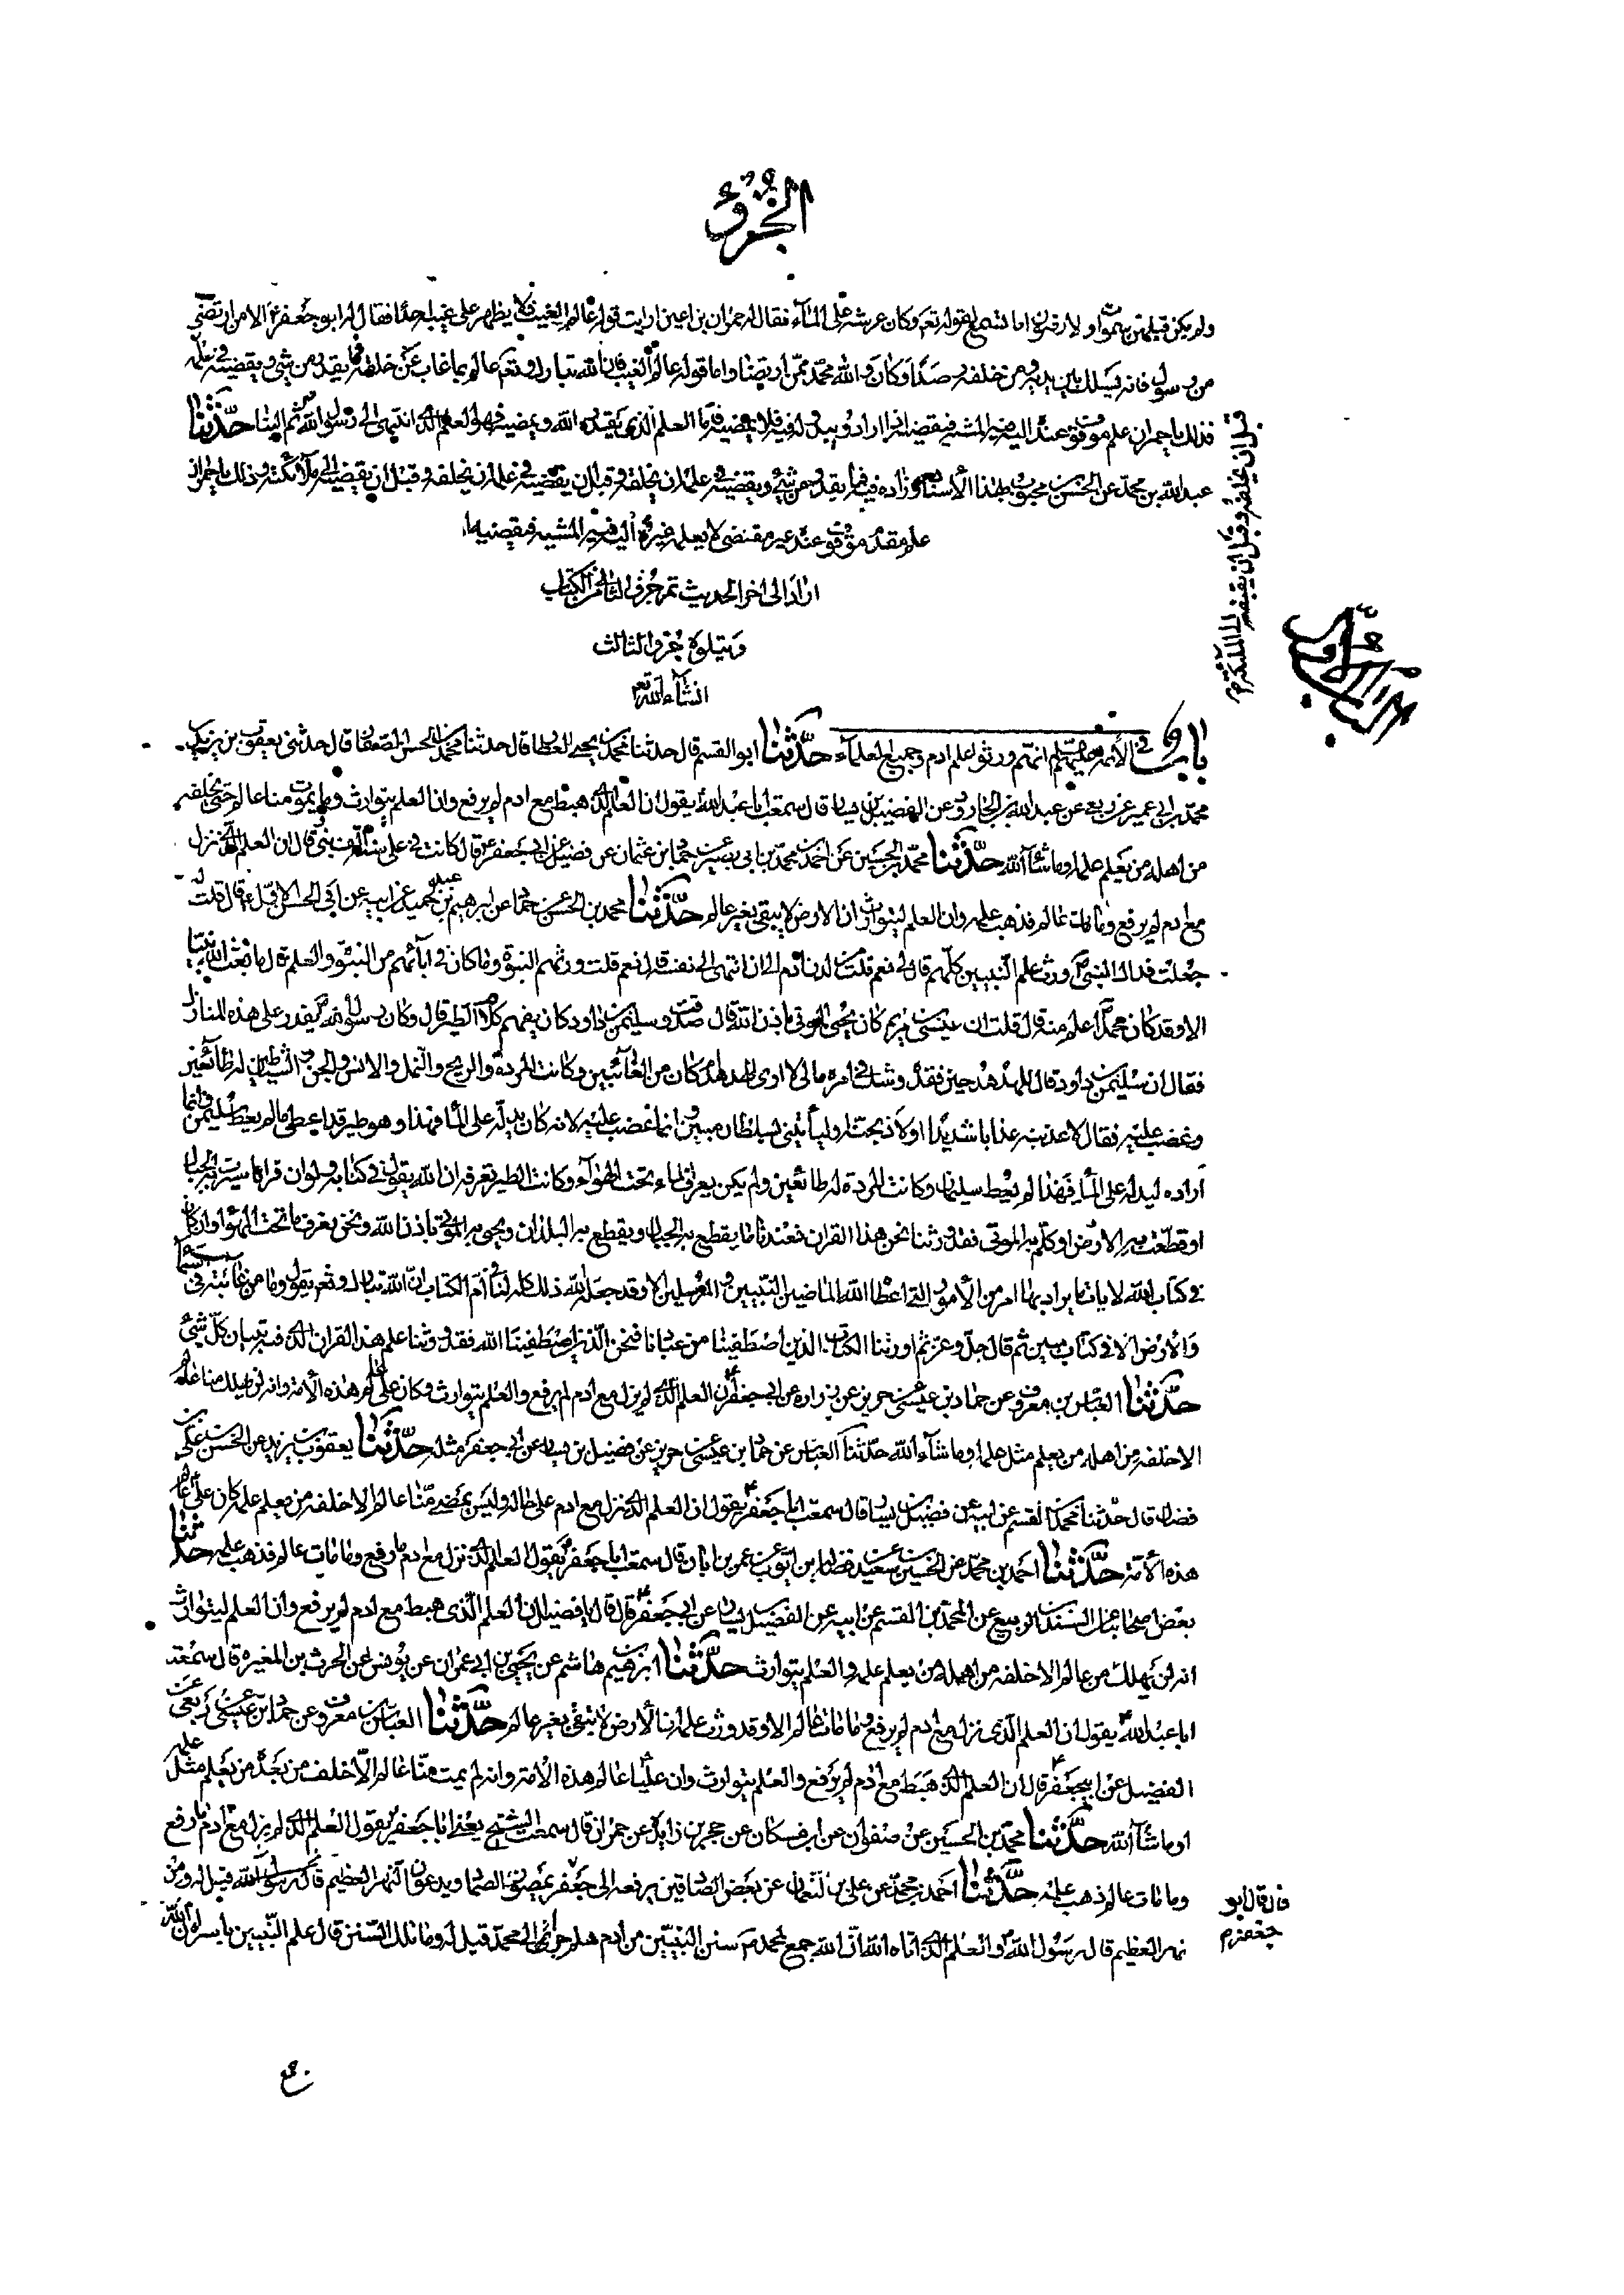 الجزؤ
ولم يكن قبلهن سموات ولا ارضون اما تسمع لقوله تعم وكان عرشه على الماء فقال له حمران بن اعين ارايت قوله عالم الغيب فلا يظهر على غيبه احدا فقال له ابو جعفر ع الا من ارتضى
من رسول فانه يسلك من بين يديه ومن خلفه رصدا وكان والله محمد ممن ارتضاه واما قوله عالم الغيب فان الله تبارك وتعم عالم بما غاب عن خلقه فما يقدر من شئ ويقضيه في علمه
فذلك يا حمران علم موقوف عنده اليه فيه المشية فيقضيه اذا اراد ويبدو له فيه فلا يمضيه فاما العلم الذى يقدره الله ويمضيه فهو العلم الذى انتهى الى رسول الله ثم الينا حدثنا
عبد الله بن محمد عن الحسن بن محبوب بهذا الأسناد وزاد فيه فما يقدر من شئ ويقضيه في علمه ان يخلقه وقبل ان يقضيه في علمه ان يخلقه وقبل ان يقضيه الى ملائكته وذلك يا حمران
علم مقدم موقوف عنده غير مقتضى لا يعلمه غيره اليه فيه المشية فيقضيه اذا
اراد الى اخر الحديث تم جزؤ الثانى من الكتاب
ويتلوه جزؤ الثالث
انشاء الله تع
قبل ان يخلقه وقبل ان يقبضه الى الملئكة م
باب في الأئمة عليهم السلم انهم ورثوا علم ادم وجميع العلماء حدثنا ابو القسم قال حدثنا محمد بن يحيى العطار قال حدثنا محمد بن الحسن الصفار قال حدثنى يعقوب بن يزيد عن
محمد بن ابى عمير عن ربعى عن عبد الله بن الجارود عن الفضيل بن يسار قال سمعت ابا عبد الله يقول ان العلم الذى هبط مع ادم لم يرفع وان العلم يتوارث وما يموت منا عالم حتى يخلفه
من اهله من يعلم علمه او ما شاء الله حدثنا محمد بن الحسين عن احمد بن محمد بن ابى بصير عن حماد بن عثمان عن فضيل عن ابى جعفر ع قال كانت في على سنة الف نبى وقال ان العلم الذى نزل
مع ادم لم يرفع وما مات عالم فذهب علمه وان العلم ليتوارث ان الارض لا يبقى بغير عالم حدثنا محمد بن الحسن عن حماد عن ابرهيم بن عبد الحميد عن ابيه عن ابى الحسن الاول ع قال قلت له
جعلت فداك النبى ص ورث علم النبيين كلهم قال لى نعم قلت من لدن ادم الى ان انتهى الى نفسه قال نعم قلت ورثهم النبوة وما كان في ابائهم من النبوة والعلم قال ما بعث الله نبيا
الا وقد كان محمد اعلم منه قال قلت ان عيسى بن مريم كان يحيى الموتى باذن الله قال صدقت وسليمن بن داود كان يفهم كلام الطير قال وكان رسول الله ص يقدر على هذه المنازل
فقال ان سليمن بن داود قال للهدهد حين فقده وشك في امره مالى لا ارى الهدهد ام كان من الغائبين وكانت المردة والريح والنمل والانس والجن والشياطين له طائعين
وغضب عليه فقال لاعذبنه عذابا شديدا او لاذبحنه او ليأتينى بسلطان مبين وانما غضب عليه لانه كان يدله على الماء فهذا وهو طير قد اعطى ما لم يعط سليمن وانما
اراده ليدله على الماء فهذا لم يعط سليمان وكانت المردة له طائعين ولم يكن يعرف الماء تحت الهواء وكانت الطير تعرفه ان الله يقول في كتابه ولو ان قرانا سيرت به الجبال
او قطعت به الارض او كلم به الموتى فقد ورثنا نحن هذا القران فعندنا ما يقطع به الجبال ويقطع به البلدان ويحيى به الموتى باذن الله ونحن نعرف ما تحت الهواء وان كان
في كتاب الله لايات ما يراد بها امر من الأمور التى اعطاه الله الماضين النبيين والمرسلين الا وقد جعله الله ذلك كله لنا في ام الكتاب ان الله تبارك وتعم يقول وما من غائبة في السماء
والأرض الا في كتاب مبين ثم قال جل وعز ثم اورثنا الكتاب الذين اصطفينا من عبادنا فنحن الذين اصطفينا الله فقد ورثنا علم هذا القران الذى فيه تبيان كل شئ
حدثنا العباس بن معروف عن حماد بن عيسى عن حريز عن زراره عن ابى جعفر ع ان العلم الذى لم يزل مع ادم لم يرفع والعلم يتوارث وكان على عالم هذه الأمة وانه لن يهلك منا عالم
الا خلفه من اهله من يعلم مثل علمه او ما شاء الله حدثنا العباس عن حماد بن عيسى عن حريز عن فضيل بن يسار عن ابى جعفر ع مثله حدثنا يعقوب بن يزيد عن الحسن بن على بن
فضال قال حدثنا محمد بن القسم عن ابيه عن فضيل بن يسار قال سمعت ابا جعفر ع يقول ان العلم الذى نزل مع ادم على حاله وليس يمضى منا عالم الا خلفه من يعلم علمه كان على عالم
هذه الأمة حدثنا احمد بن محمد عن الحسين بن سعيد عن فضالة بن ايوب عن عمر بن ابان قال سمعت ابا جعفر ع يقول العلم الذى نزل مع ادم ما رفع وما مات عالم فذهب علمه حدثنا
بعض اصحابنا عن السندى بن الربيع عن محمد بن القسم عن ابيه عن الفضيل بن يسار عن ابى جعفر ع قال قال يا فضيل ان العلم الذى هبط مع ادم لم يرفع وان العلم ليتوارث
انه لن يهلك من عالم الا خلفه من اهله من يعلم علمه والعلم يتوارث حدثنا ابرهيم بن هاشم عن يحيى بن ابى عمران عن يونس عن الحرث بن المغيره قال سمعت
ابا عبد الله ع يقول ان العلم الذى نزل مع ادم لم يرفع وما مات عالم الا وقد ورث علمه ان الأرض لا تبقى بغير عالم حدثنا العباس بن معروف عن حماد بن عيسى عن ربعى عن
الفضيل عن ابيجعفر ع قال ان العلم الذى هبط مع ادم لم يرفع والعلم يتوارث وان عليا ع عالم هذه الأمة وانه لم يمت منا عالم الا خلف من بعده من يعلم مثل علمه
او ما شاء الله حدثنا محمد بن الحسين عن صفوان عن ابن مسكان عن حجر بن زايده عن حمران قال سمعت الشيخ يعنى ابا جعفر ع يقول العلم الذى لم يزل مع ادم ما رفع
وما مات عالم ذهب علمه حدثنا احمد بن محمد عن على بن النعمان عن بعض الصادقين يرفعه الى جعفر يمصون الصماد ويدعون النهر العظيم قال رسول الله قيل له ومن
نهر العظيم قال رسول الله ص والعلم الذى اتاه الله ان الله جمع لمحمد ص سنن النبيين من ادم هلم جرا الى محمد قيل له وما تلك السنن قال علم النبيين باسره ان الله
قال قال ابو
جعفر م